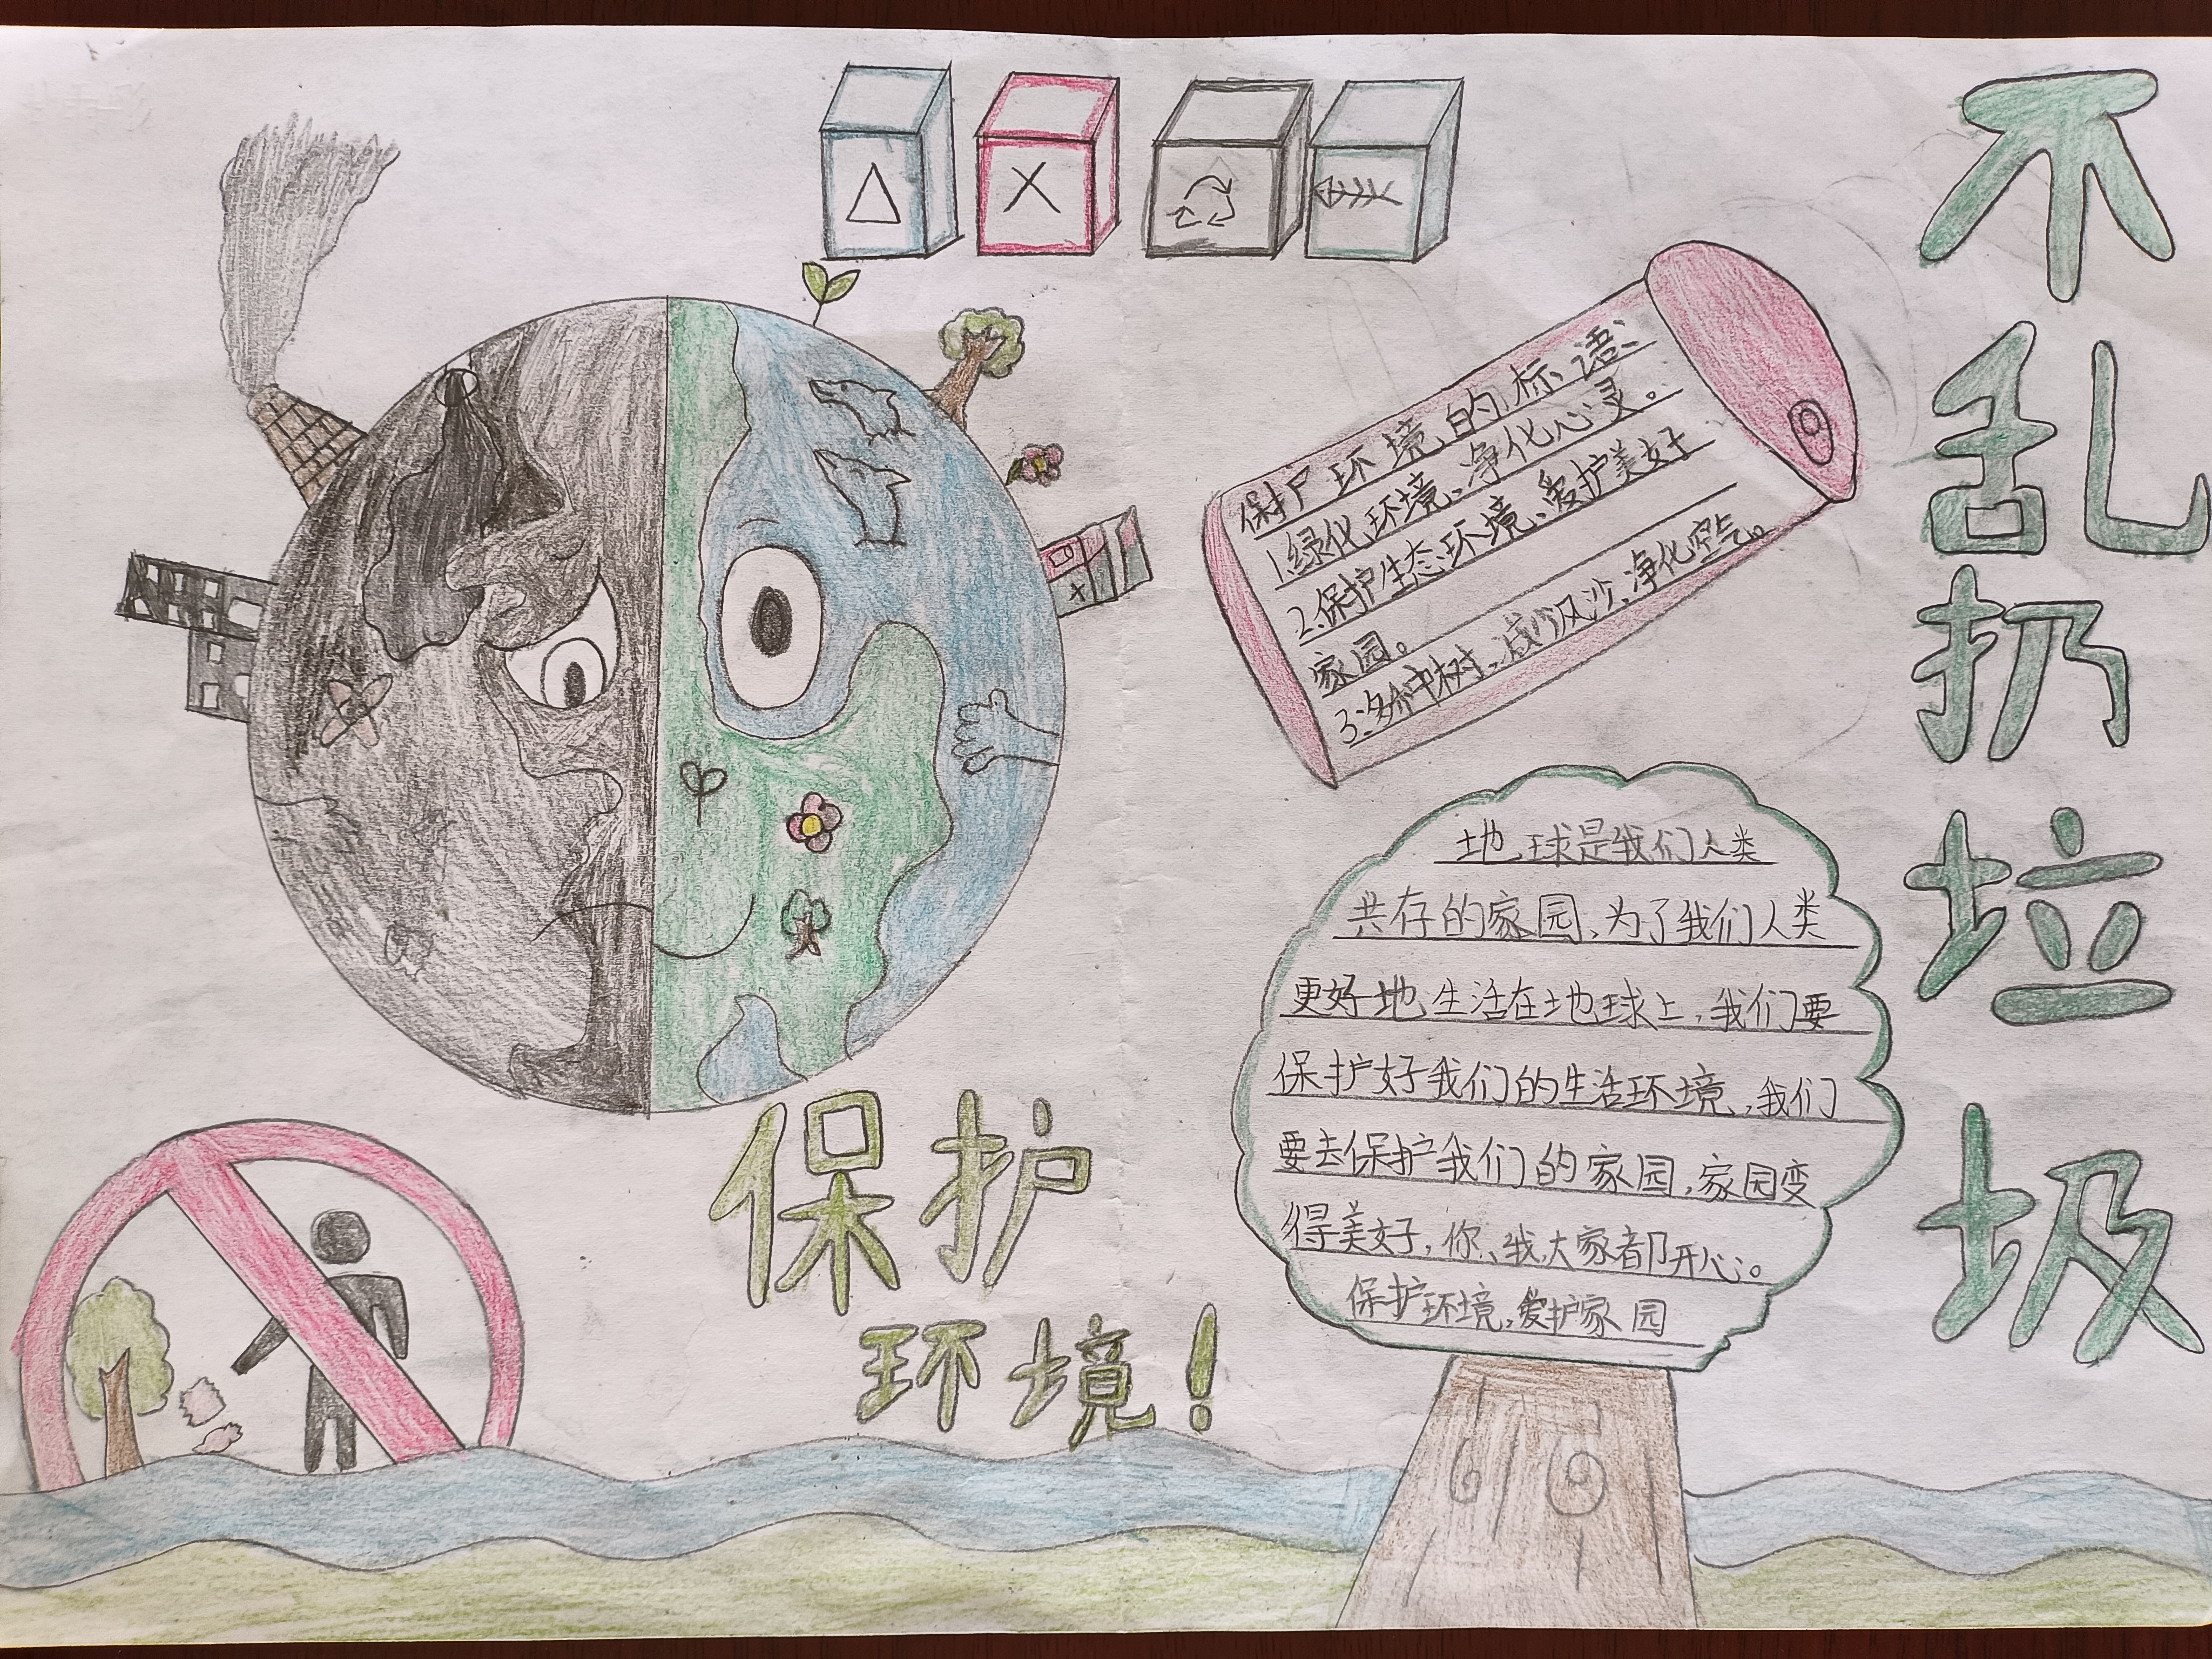 不乱扔垃圾
保护环境的标语、
1.绿化环境、净化心灵。
2.保护生态环境、爱护美好
家园。
3.多种树、减少风沙、净化空气。
地球是我们人类
共存的家园、为了我们人类
更好地生活在地球上，我们要
保护好我们的生活环境，我们
要去保护我们的家园，家园变
得美好，你、我、大家都开心。
保护环境，爱护家园
保护
环境！